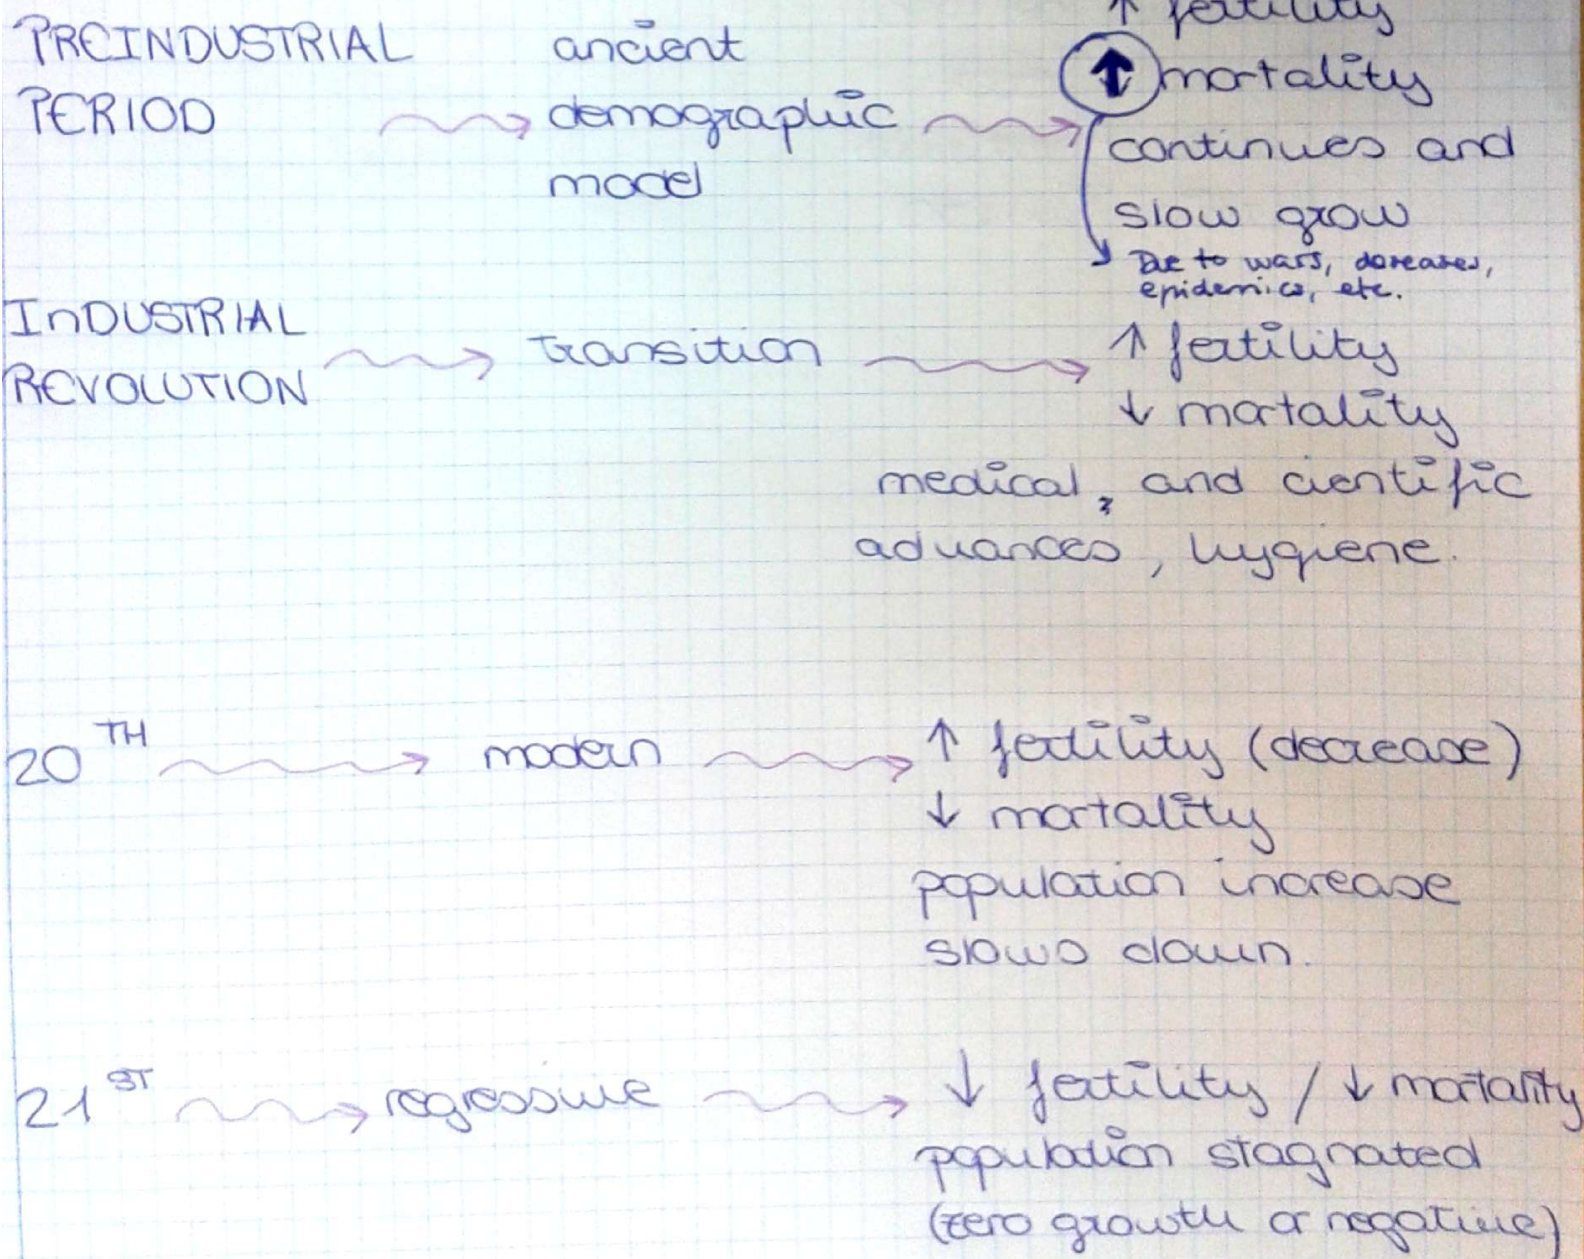 ↑ fertility
PREINDUSTRIAL ancient ↑ mortality
PERIOD → demographic → continues and
model slow grow
Due to wars, doreares,
epidemics, etc.
InDUSTRIAL
REVOLUTION → transition → ↑ fertility
↓ mortality
medical, and cientific
advances, hygiene.
20TH → modern → ↑ fertility (decrease)
↓ mortality
population increase
slows down.
21ST → regressive → ↓ fertility / ↓ mortality
population stagnated
(zero growth or negative)